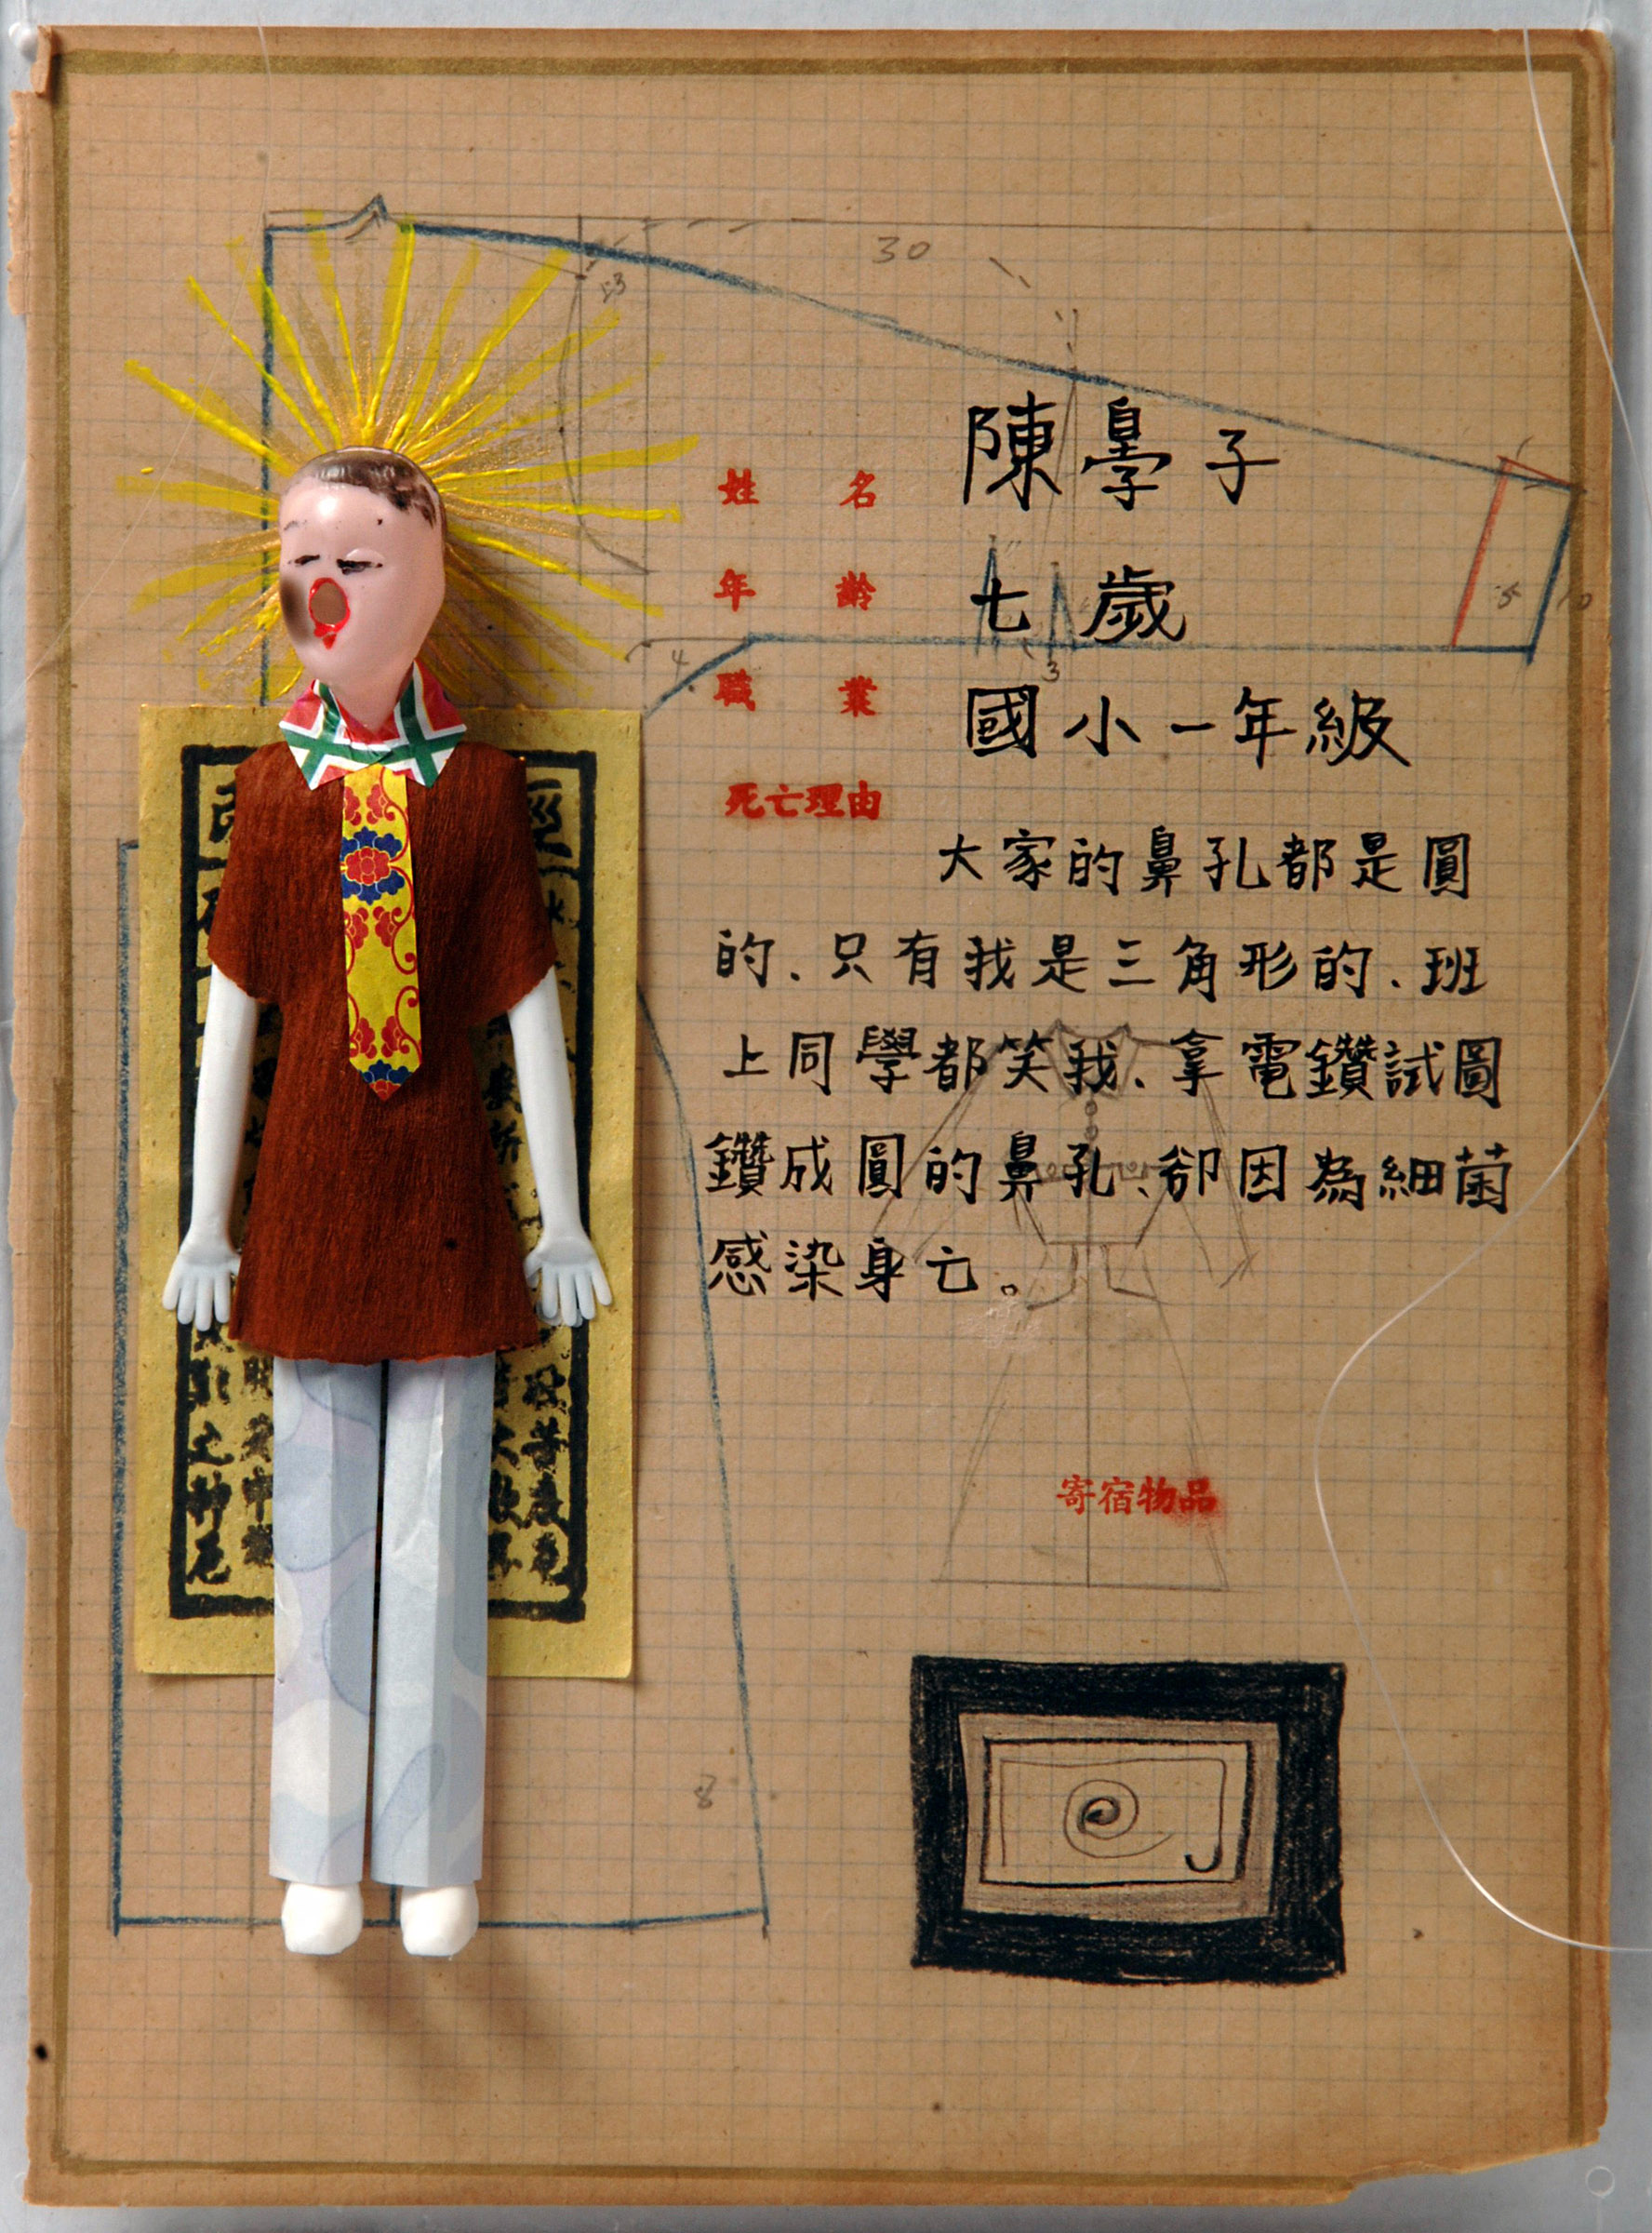 姓名 陳學子
年齡 七歲
職業 國小一年級
死亡理由
大家的鼻孔都是圓
的、只有我是三角形的、班
上同學都笑我、拿電鑽試圖
鑽成圓的鼻孔、卻因為細菌
感染身亡。
寄宿物品
30
4
3
8